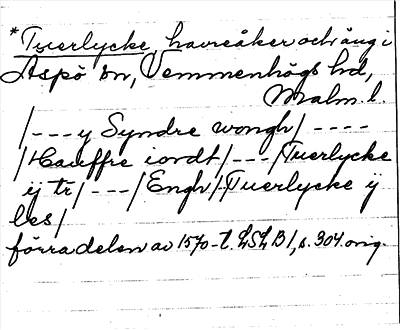 *Tuerlycke, havreåker och äng i
Aspö sn, Vemmenhögs hd,
Malm. l.
/---y Syndre wongh/----
/Hauffre iordt/---/Tuerlycke
ij tr/---/Engh/-/Tuerlycke ij
les/
förra delen av 1570-t. LSLB1, s. 304 orig.